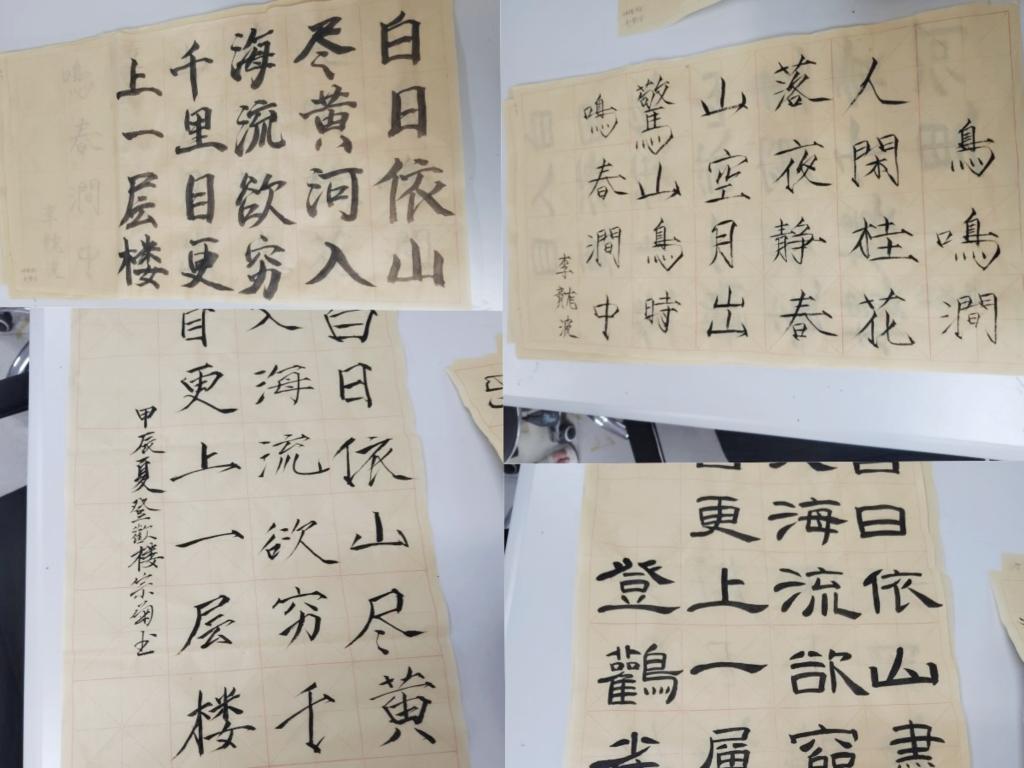 白日依山
尽黄河入
海流欲穷
千里目更
上一层楼
鳴春澗中
李龍波
鳥鳴澗
人閑桂花
落夜静春
山空月出
驚山鳥時
鳴春澗中
李龍波
白日依山尽黄
入海流欲穷千
目更上一层楼
甲辰夏登歡楼宗菊书
白日依山
海流欲窮
更上一層
登鸛雀